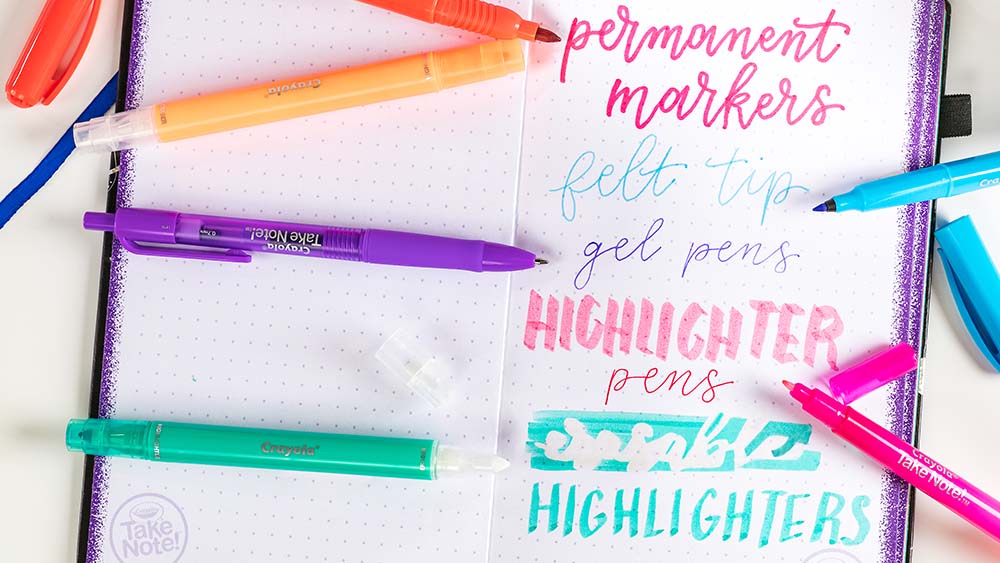 permanent
markers
felt tip
gel pens
HIGHLIGHTER
pens
erasable
HIGHLIGHTERS
Crayola
Crayola
Take Note!
0.7mm
Crayola
Crayola
Take Note!
Take
Note!